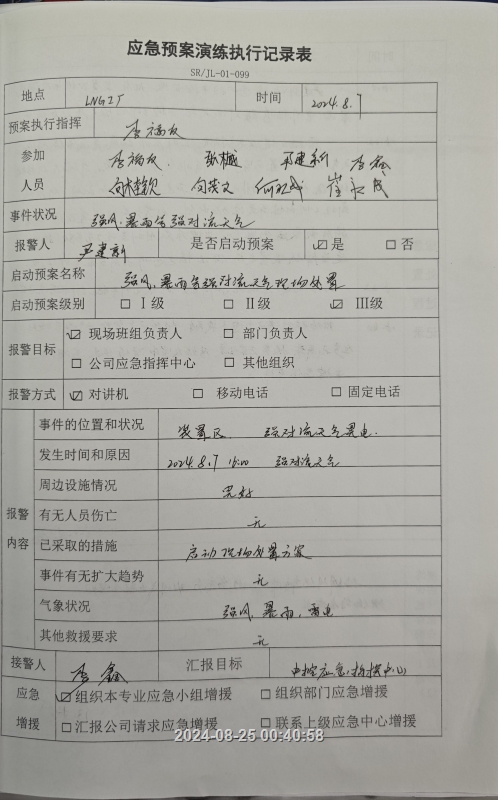 应急预案演练执行记录表
SR/JL-01-099
地点 LNG工厂 时间 2024.8.7
预案执行指挥
参加
人员 李鑫
事件状况 强风、暴雨等强对流天气
报警人 尹建新 是否启动预案 ☑是 □否
启动预案名称 强风、暴雨等强对流天气现场处置
启动预案级别 □I级 □II级 ☑III级
报警目标 ☑现场班组负责人 □部门负责人
□公司应急指挥中心 □其他组织
报警方式 ☑对讲机 □移动电话 □固定电话
报警内容
事件的位置和状况 装置区 强对流天气
发生时间和原因 2024.8.7 强对流天气
周边设施情况 完好
有无人员伤亡 无
已采取的措施 启动现场处置方案
事件有无扩大趋势 无
气象状况 强风、暴雨、雷电
其他救援要求 无
接警人 李鑫 汇报目标 中控应急指挥中心
应急 ☑组织本专业应急小组增援 □组织部门应急增援
增援 □汇报公司请求应急增援 □联系上级应急中心增援
2024-08-25 00:40:58